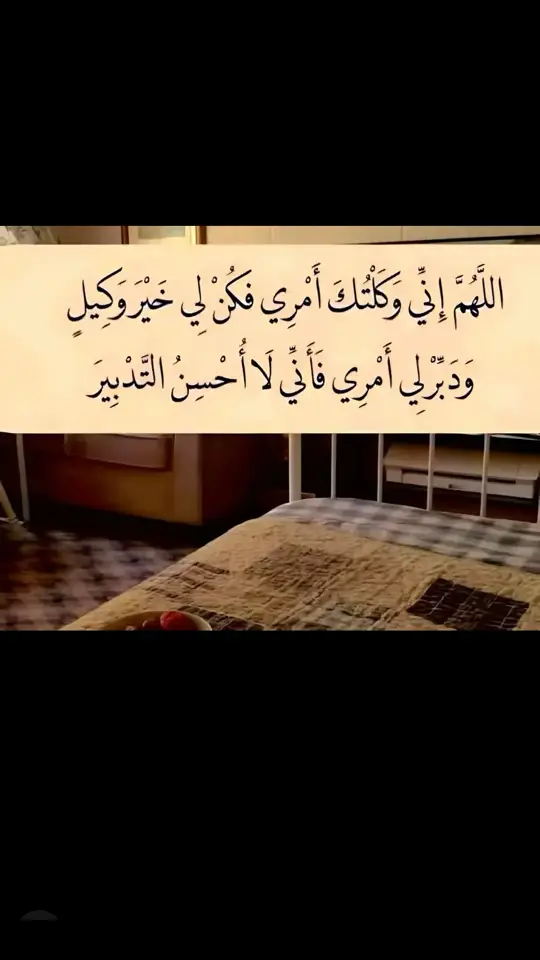 اللَّهُمَّ إِنِّي وَكَلْتُكَ أَمْرِي فَكُنْ لِي خَيْرَ وَكِيلٍ
وَدَبِّرْ لِي أَمْرِي فَأَنِّي لَا أُحْسِنُ التَّدْبِيرَ